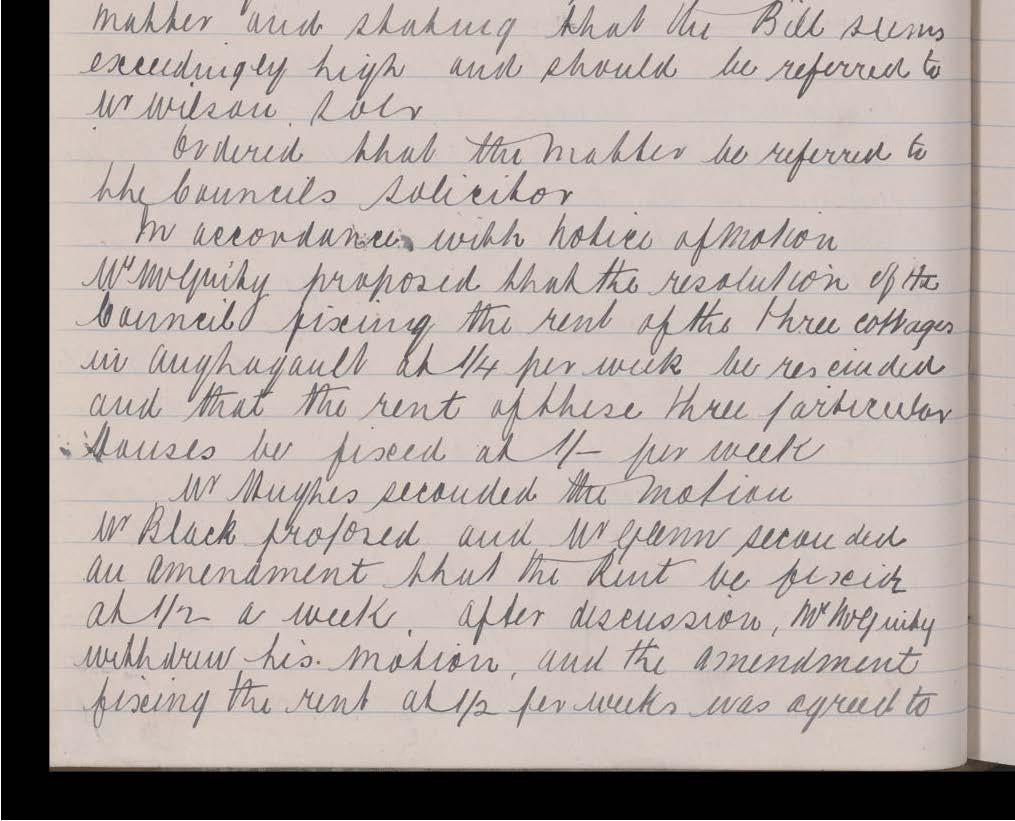 matter and stating that the Bill seems
exceedingly high and should be referred to
Mr Wilson Solr
Ordered that the Matter be referred to
the Councils Solicitor
In accordance with Notice of Motion
Mr McGinty proposed that the resolution of the
Council fixing the rent of the three cottages
in Aughagault at 1/4 per week be rescinded
and that the rent of these three particular
Houses be fixed at 1/- per week
Mr Hughes seconded the Motion
Mr Black proposed and Mr Glenn seconded
an Amendment that the Rent be fixed
at 1/2 a week. After discussion, Mr McGinty
withdrew his Motion, and the Amendment
fixing the rent at 1/2 per weeks was agreed to